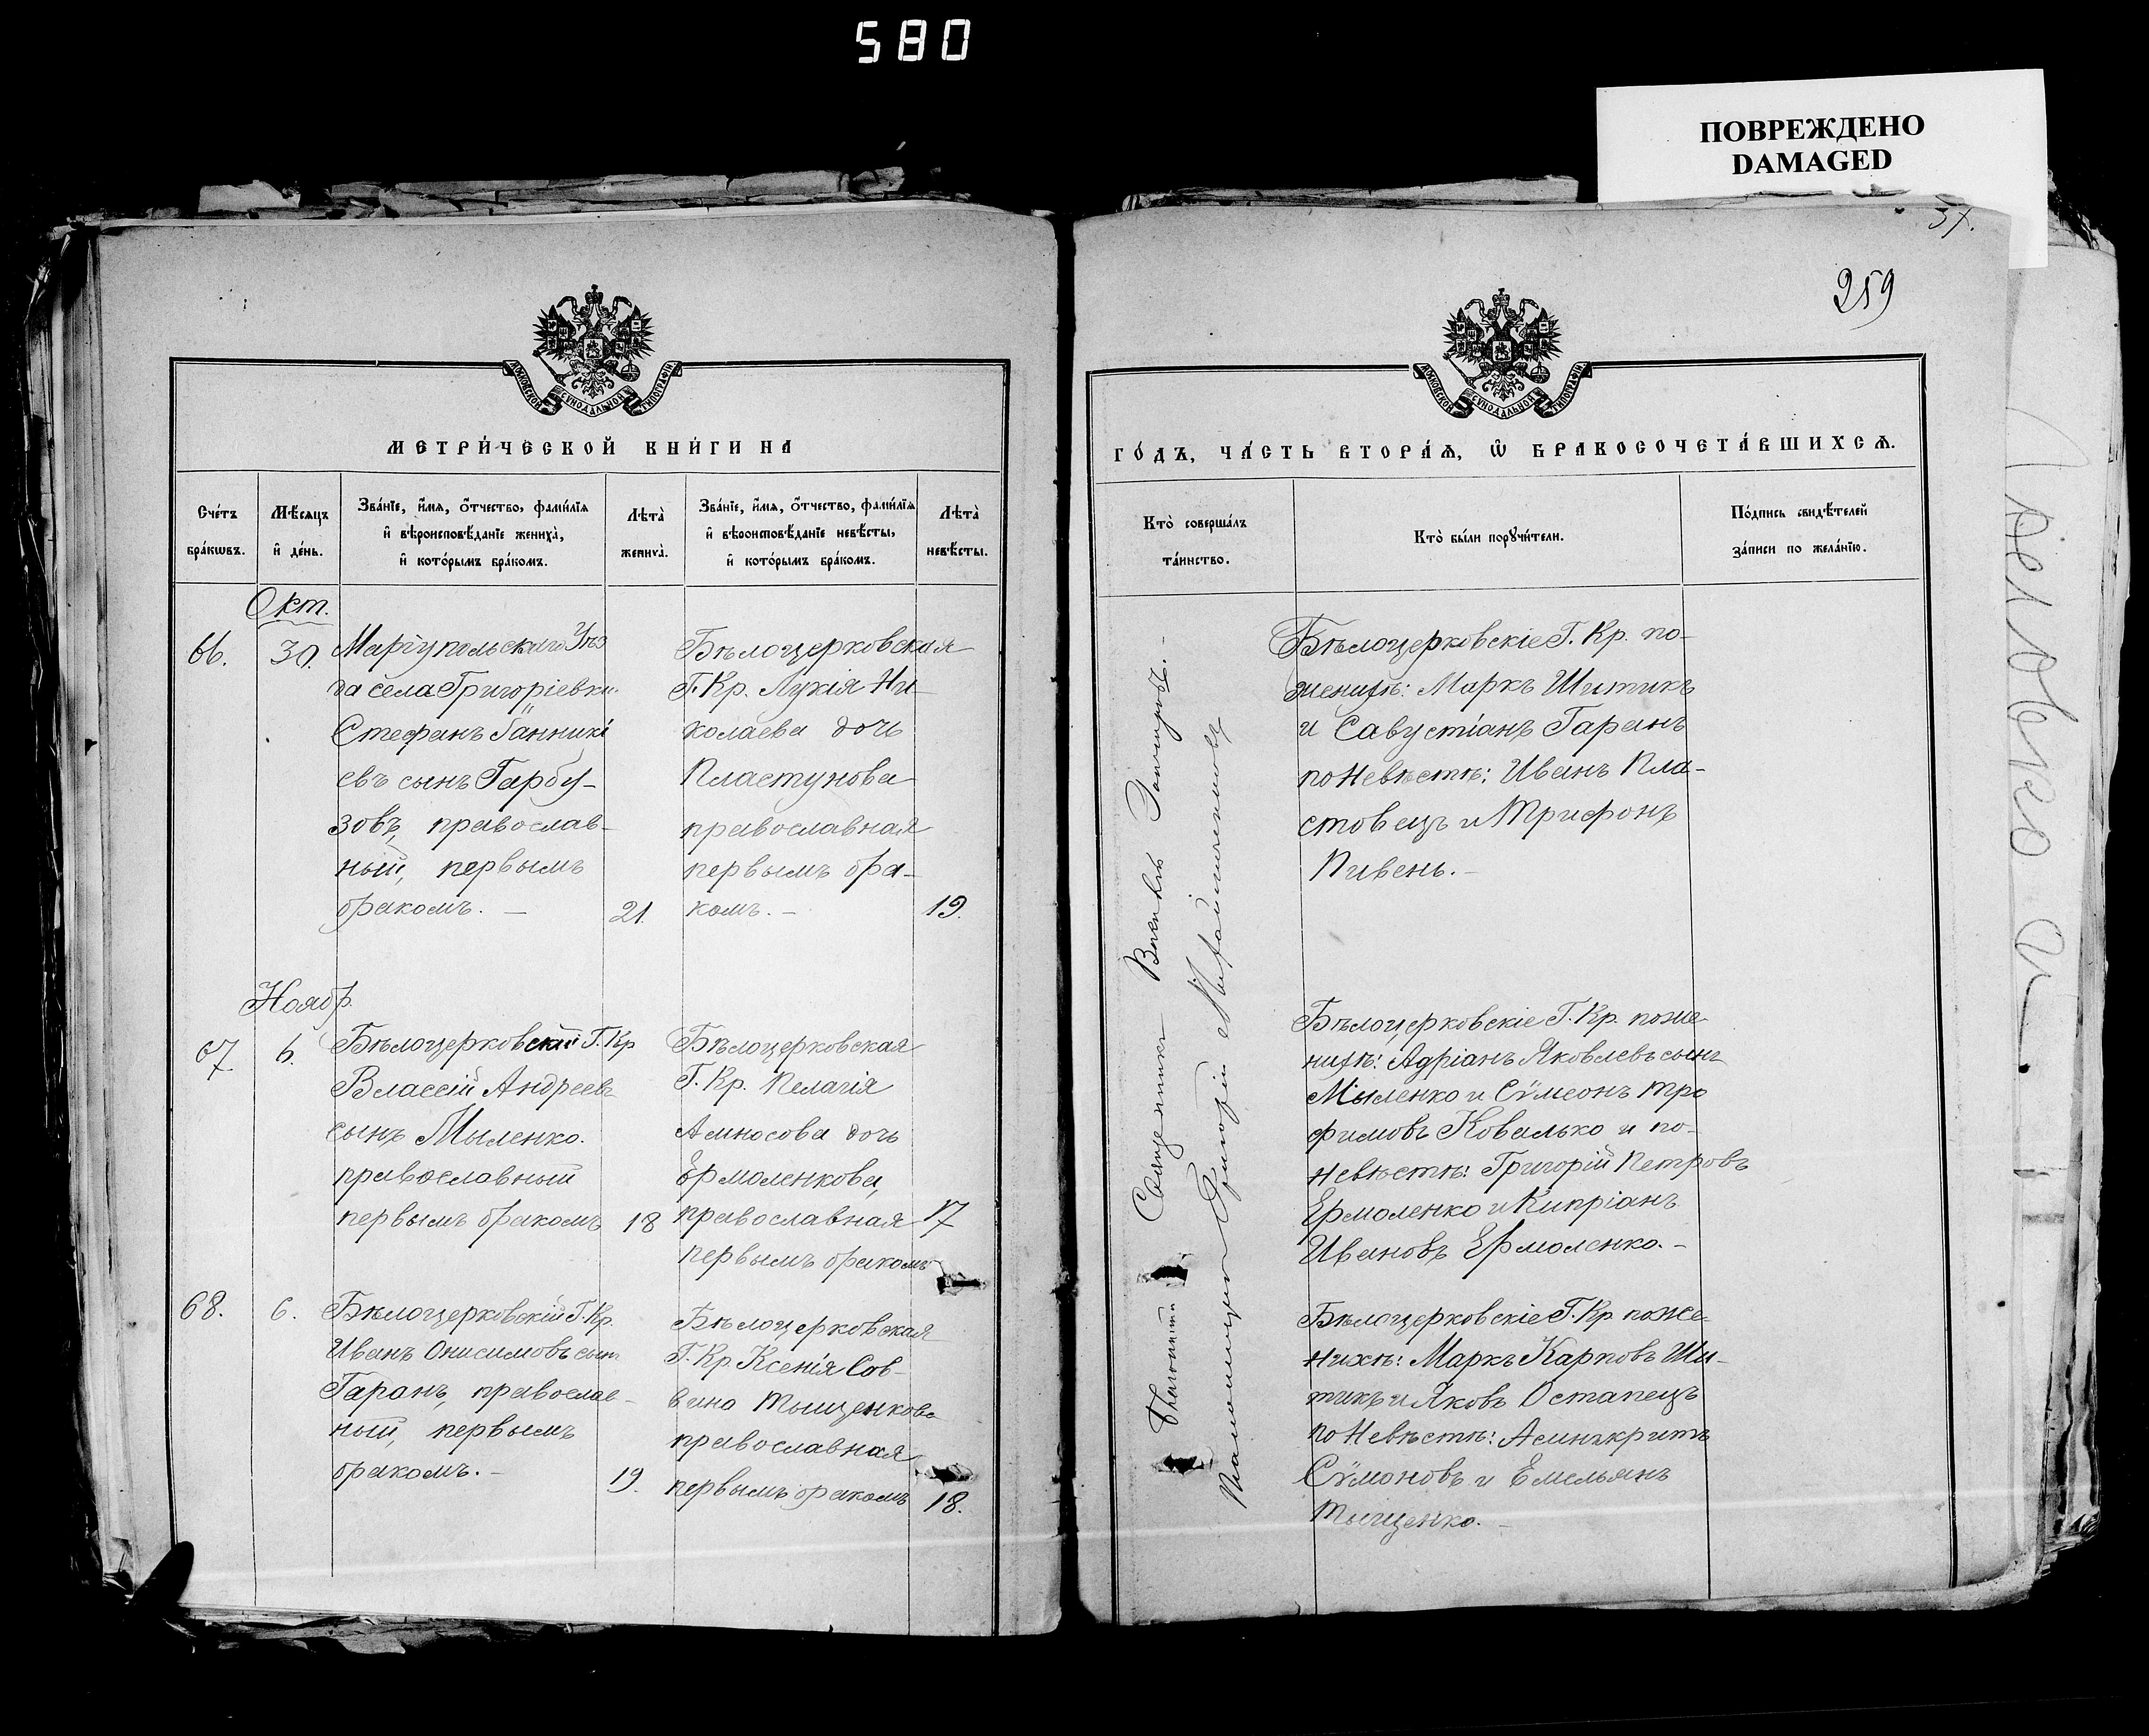 580
ПОВРЕЖДЕНО
DAMAGED
37.
259
МОСКОВСКОЙ СѴНОДАЛЬНОЙ ТИПОГРАФІИ
МЕТРИ́ЧЕСКОЙ КНИ́ГИ НА
Сче́тъ бра́кѡвъ.
Мѣ́сяцъ и҆ де́нь.
Зва́нїе, и҆́мя, ѻ҆́тчество, фами́лїя
и҆ вѣроисповѣ́данїе жениха̀,
и҆ кото́рымъ бра́комъ.
Лѣ́та̀ жениха̀.
Зва́нїе, и҆́мя, ѻ҆́тчество, фами́лїя
и҆ вѣроисповѣ́данїе невѣ́сты,
и҆ кото́рымъ бра́комъ.
Лѣ́та̀ невѣ́сты.
Окт.
66.
30.
Маріупольскаго Уѣз
да села Григоріевки
Стефанъ Іанникі
евъ сынъ Гарбу-
зовъ, православ-
ный, первымъ
бракомъ. –
21.
Бѣлоцерковская
Г. Кр. Лукія Ни-
колаева дочь
Пластунова
православная
первымъ бра-
комъ. –
19.
Нояб р.
67.
6.
Бѣлоцерковскій Г. Кр
Влассій Андреевъ
сынъ Мыленко.
православный
первымъ бракомъ
18
Бѣлоцерковская
Г. Кр. Пелагія
Амносова дочь
Ермоленкова,
православная
первымъ бракомъ
17
68.
6.
Бѣлоцерковскій Г. Кр.
Иванъ Онисимовъ сынъ
Гаранъ, православ-
ный, первымъ
бракомъ. –
19.
Бѣлоцерковская
Г. Кр. Ксенія Сав-
вина Тыщенкова
православная
первымъ бракомъ
18.
МОСКОВСКОЙ СѴНОДАЛЬНОЙ ТИПОГРАФІИ
ГО́ДЪ, ЧА́СТЬ ВТОРА́Я, Ѡ҆ БРАКОСОЧЕТА́ВШИХСЯ.
Кто̀ соверша́лъ
та́инство.
Кто̀ бы́ли порꙋчи́тели.
По́дпись свидѣ́телей
за́писи по жела́нїю.
Священникъ Василій
Псаломщикъ Григорій
Бѣлоцерковскіе Г. Кр. по-
женихѣ: Маркъ Шитикъ
и Савустіанъ Гаранъ
по Невѣстѣ: Иванъ Пла-
стовецъ и Трифонъ
Пивень. –
Бѣлоцерковскіе Г. Кр. по же-
нихѣ: Адріанъ Яковлевъ сынъ
Мыленко и Сѵмеонъ Тро
фимовъ Ковалько и по-
невѣстѣ: Григорій Петровъ
Ермоленко и Кипріанъ
Ивановъ Ермоленко. –
Бѣлоцерковскіе Г. Кр по же-
нихѣ: Маркъ Карповъ Ши-
тикъ и Яковъ Остапецъ
по Невѣстѣ: Асинкритъ
Сѵмоновъ и Емельянъ
Тыщенко. –